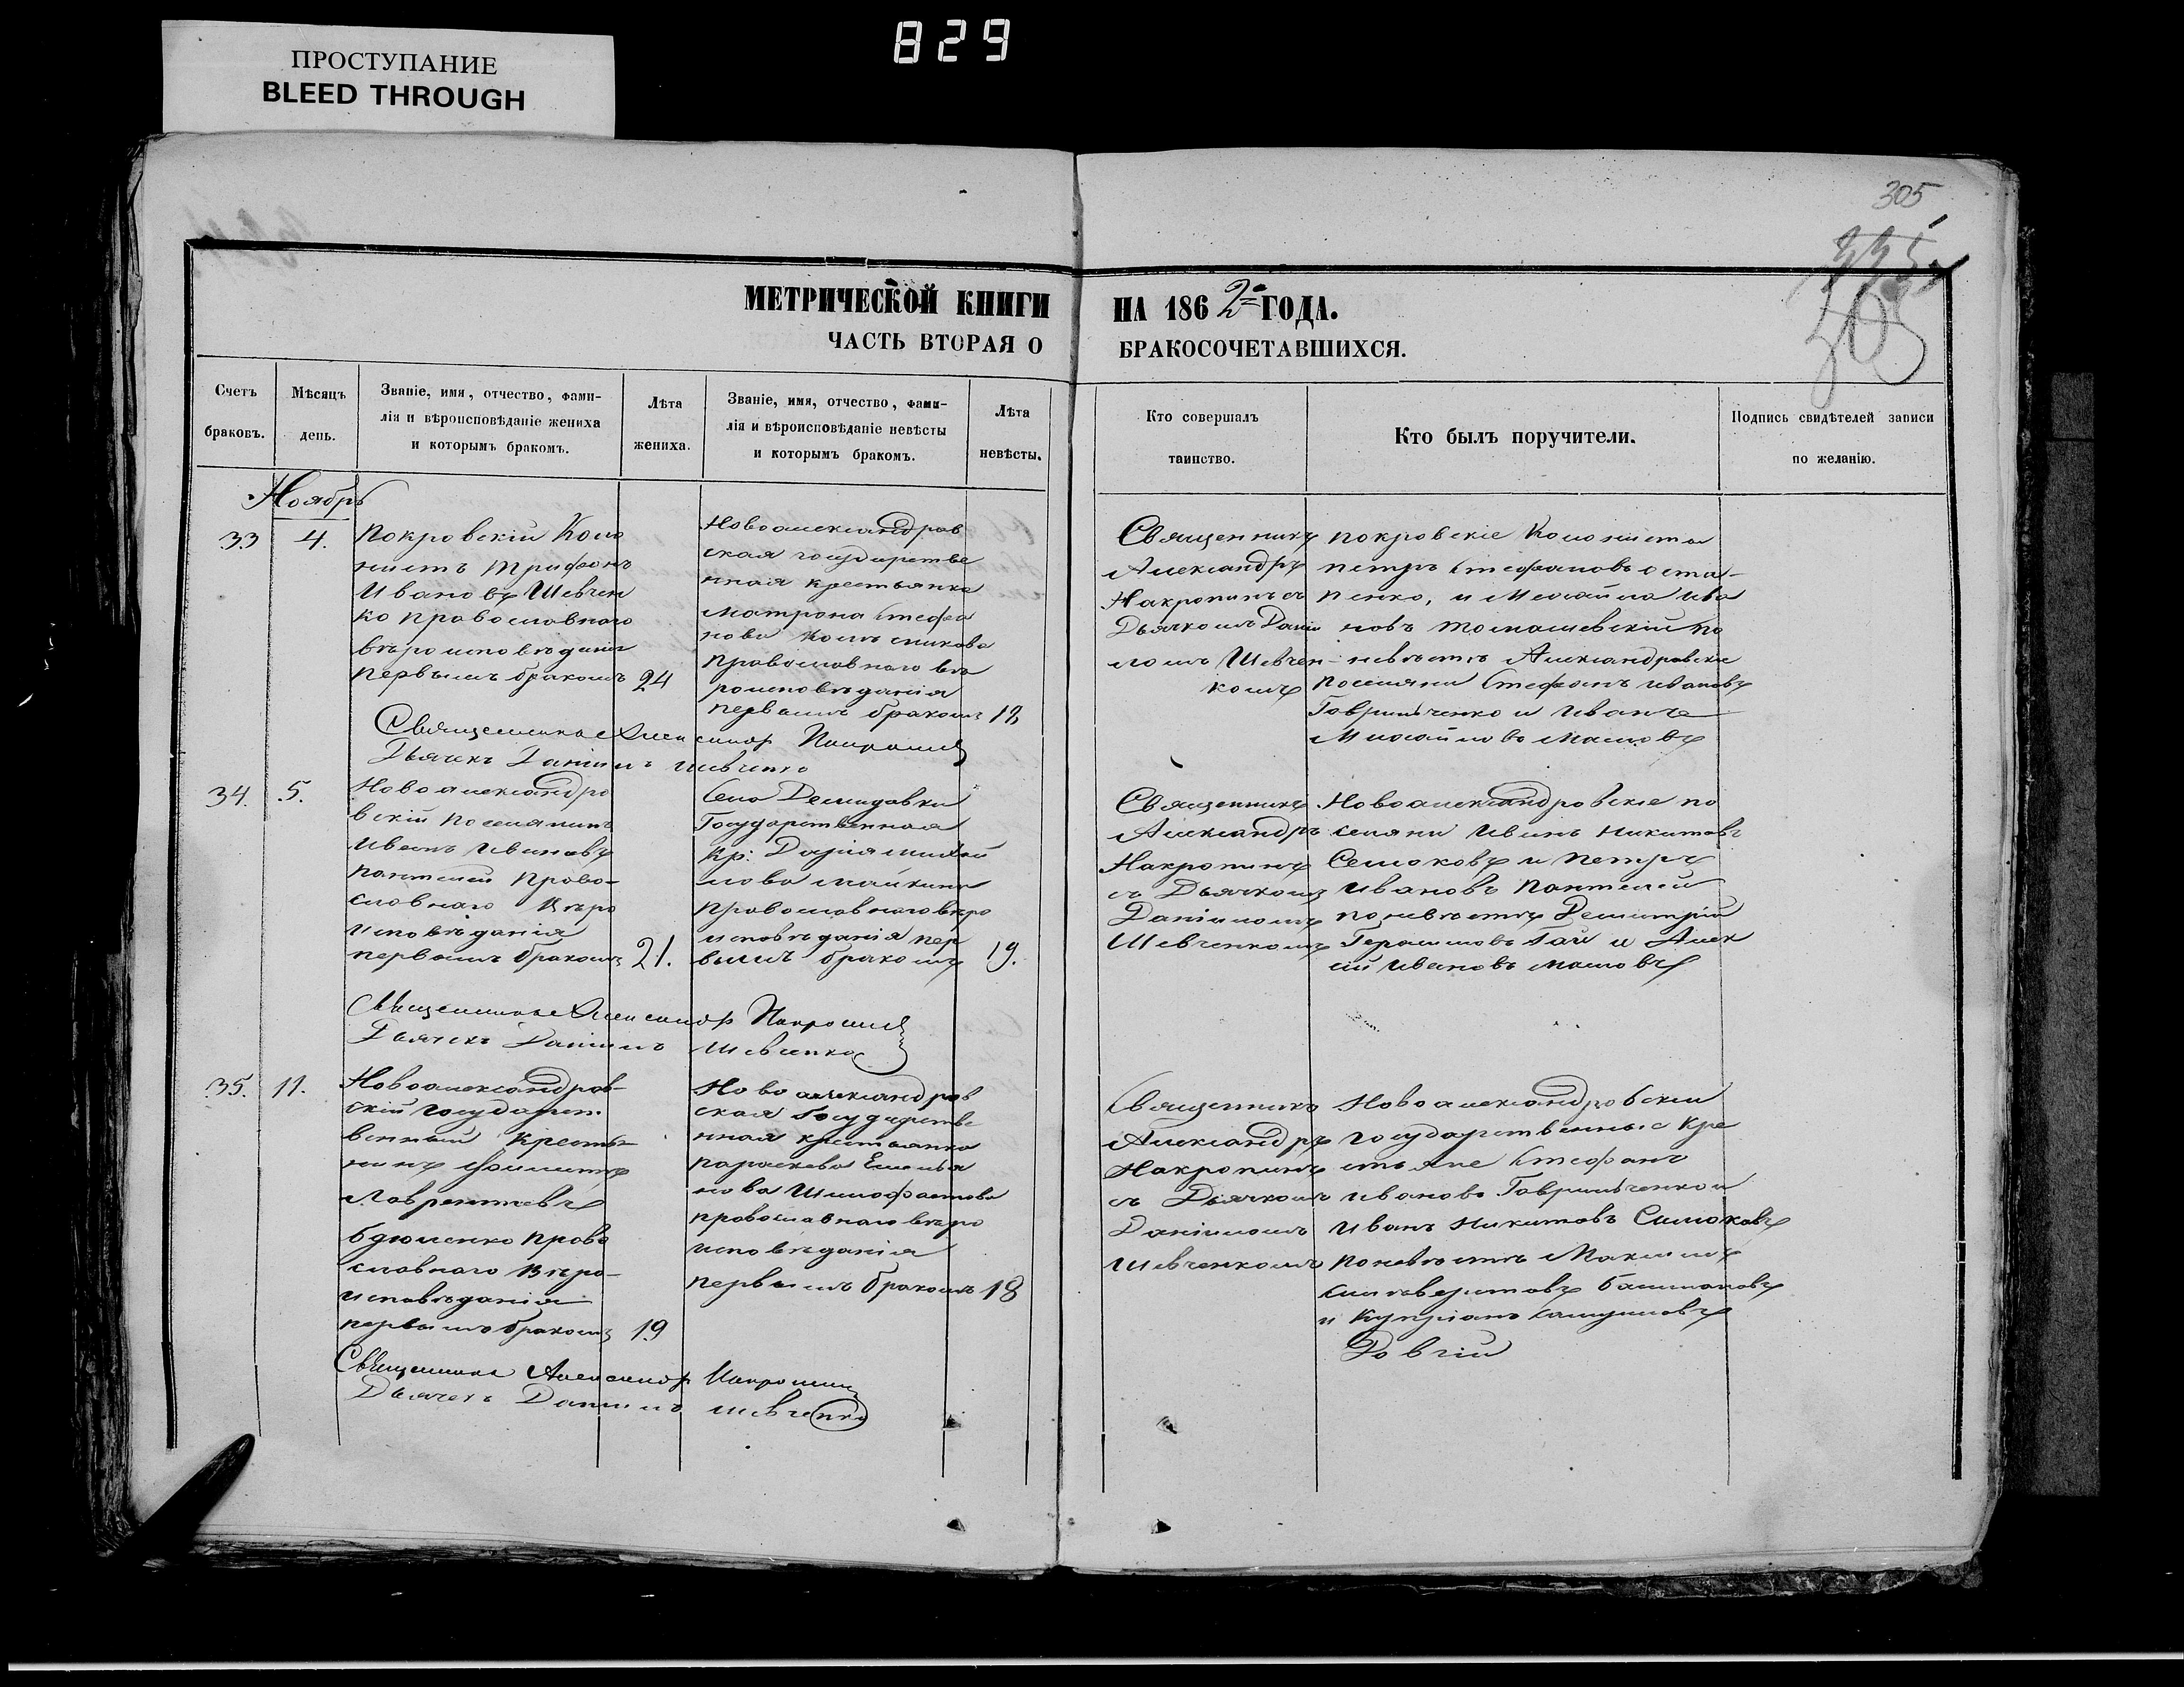 ПРОСТУПАНИЕ
BLEED THROUGH
829
305
335
305
МЕТРИЧЕСКОЙ КНИГИ НА 1862го ГОДА.
ЧАСТЬ ВТОРАЯ О БРАКОСОЧЕТАВШИХСЯ.
Счетъ браковъ.
Мѣсяцъ день.
Званіе, имя, отчество, фами-
лія и вѣроисповѣданіе жениха
и которымъ бракомъ.
Лѣта жениха.
Званіе, имя, отчество, фами-
лія и вѣроисповѣданіе невѣсты
и которымъ бракомъ.
Лѣта невѣсты.
Кто совершалъ
таинство.
Кто былъ поручители.
Подпись свидѣтелей записи
по желанію.
Ноябрь
33 4.
Покровскій Коло
нистъ Трифонъ
Ивановъ Шевчен
ко православнаго
вѣроисповѣданія
первымъ бракомъ 24
Новоалександров
ская государстве
нная крестьянка
Матрона Стефа
нова
православнаго вѣ
роисповѣданія
первымъ бракомъ
Священникъ
Александръ
Накропинъ съ
Дьячкомъ Даніи
ломъ Шевчен-
комъ
покровскіе Колониста
петръ Стефановъ оста-
пенко, и Михайло Ива
новъ Томашевскій по
невѣстѣ Александровскіе
поселяни Стефанъ Ивановъ
Гаврильченко и Иванъ
Михайловъ Масловъ
Священникъ Александръ Накропинъ
Дьячекъ Даніилъ Шевченко
34. 5.
Новоалександро
вскій поселянинъ
Иванъ Ивановъ
Пантелей Право-
славнаго Вѣро
исповѣданія
первымъ бракомъ 21.
Село Демидовки
Государственная
Кр: Дарія Михай
лова
Православнаго вѣро
исповѣданія пер
вымъ бракомъ 19.
Священникъ
Александръ
Накропинъ
съ Дьячкомъ
Даніиломъ
Шевченкомъ
Новоалександровскіе по
селяни Иванъ Никитовъ
Семоковъ и Петръ
Ивановъ Пантелей
по невѣстѣ Демитрій
Герасимовъ Гай и Алек
сій Ивановъ Масловъ
Священникъ Александръ Накропинъ
Дьячекъ Даніилъ Шевченко
35. 11.
Новоалександров-
скій государст-
венный Крестья
нинъ Филиппъ
Лаврентіевъ
Православнаго Вѣро-
исповѣданія
первымъ бракомъ 19
Новоалександров
ская Государстве
нная крестьянка
Параскева Емелья
нова
православнаго вѣро
исповѣданія
первымъ бракомъ 18
Священникъ
Александръ
Накропинъ
съ Дьячкомъ
Даніиломъ
Шевченкомъ
Новоалександровскіи
государственные Кре
стьяне Стефанъ
Ивановъ Гаврильченко и
Иванъ Никитовъ Симоковъ
по невѣстѣ Максимъ
Силивертовъ Баштановъ
и Купріанъ
Довгій
Священникъ Александръ Накропинъ
Дьячекъ Даніилъ Шевченко